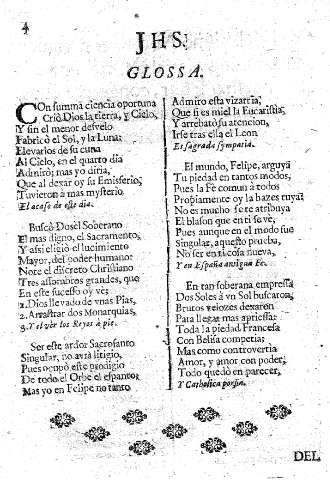 4
JHS:
GLOSSA.
COn summa ciencia oportuna
Criò Dios la tierra, y Cielo,
Y sin el menor desvelo
Fabricò el Sol, y la Luna:
Elevarlos de su cuna
Al Cielo, en el quarto dia
Admirò; mas yo diria,
Que al dexar oy su Emisferio,
Tuvieron à mas mysterio
El acaso de este dia.
Buscò Dosèl Soberano
El mas digno, el Sacramento,
Y assi eligiò el lucimiento
Mayor, del poder humano:
Note el discreto Christiano
Tres assombros grandes, que
En este sucesso oy vè:
1. Dios llevado de vnas Pias,
2. Arrastrar dos Monarquias,
3. Y el vèr los Reyes à pie.
Ser este ardor Sacrosanto
Singular, no avrà litigio,
Pues ocupò este prodigio
De todo el Orbe el espanto;
Mas yo en Felipe no tanto
Admiro esta vizarria;
Que si es miel la Eucaristia,
Y arrebatò su atencion,
Irse tras ella el Leon
Es sagrada sympatia.
El mundo, Felipe, arguya
Tu piedad en tantos modos,
Pues la Fè comun à todos
Propiamente oy la hazes tuya:
No es mucho se te atribuya
El blason que en ti se vè,
Pues aunque en el modo fue
Singular, aquesto prueba,
No ser en ti cosa nueva,
Y en España antigua Fè.
En tan soberana empressa
Dos Soles à vn Sol buscaron,
Brutos velozes dexaron
Para llegar mas apriessa:
Toda la piedad Francesa
Con Belisa competia;
Mas como controvertia
Amor, y amor con poder,
Todo quedò en parecer,
Y Catholica porfia.
DEL